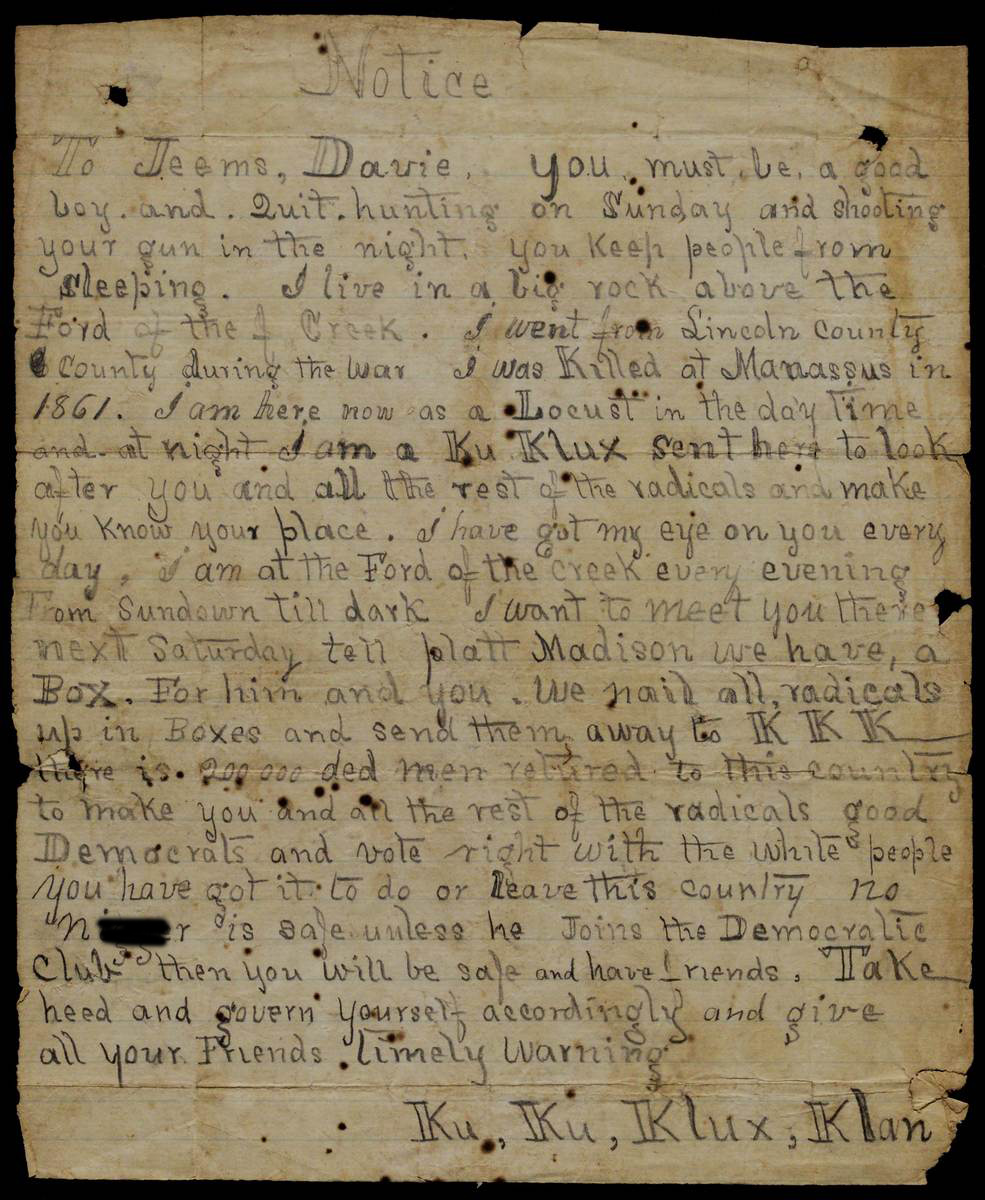 Notice
To Jeems, Davie. you. must. be. a good
boy. and. Quit. hunting on Sunday and shooting
your gun in the night. you keep people from
sleeping. I live in a big rock above the
Ford of the Creek. I went from Lincoln County
County during the War I was Killed at Manassus in
1861. I am here now as a Locust in the day Time
and. at night I am a Ku Klux sent here to look
after you and all the rest of the radicals and make
you know your place. I have got my eye on you every
day, I am at the Ford of the creek every evening
From Sundown till dark I want to meet you there
next Saturday tell platt Madison we have, a
Box. For him and you. We nail all, radicals
up in Boxes and send them away to KKK
there is. 200 000 ded men retured to this country
to make you and all the rest of the radicals good
Democrats and vote right with the white people
you have got it to do or leave this country no
is safe unless he Joins the Democratic
Club then you will be safe and have friends. Take
heed and govern yourself accordingly and give
all your Friends timely warning
Ku, Ku, Klux, Klan